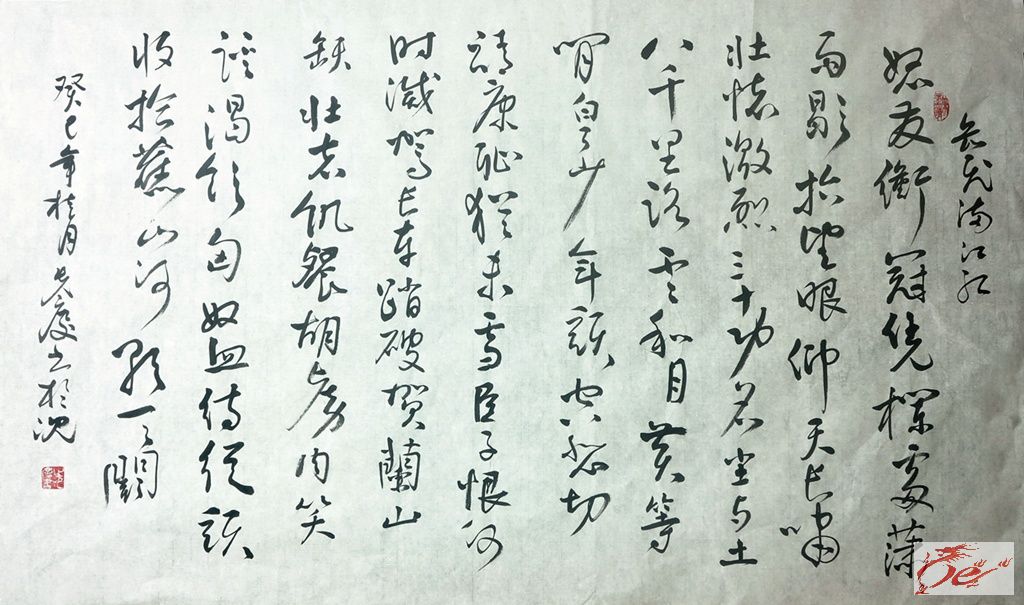 岳飛满江红
怒发衝冠凭欄處潇
雨歇抬望眼仰天长啸
壮懷激烈三十功名尘与土
八千里路云和月莫等
闲白了少年头空悲切
靖康耻犹未雪臣子恨何
时滅驾长车踏破贺蘭山
缺壮志饥餐胡虏肉笑
谈渴饮匈奴血待從头
收拾舊山河朝天闕
癸巳年桂月 书於沈